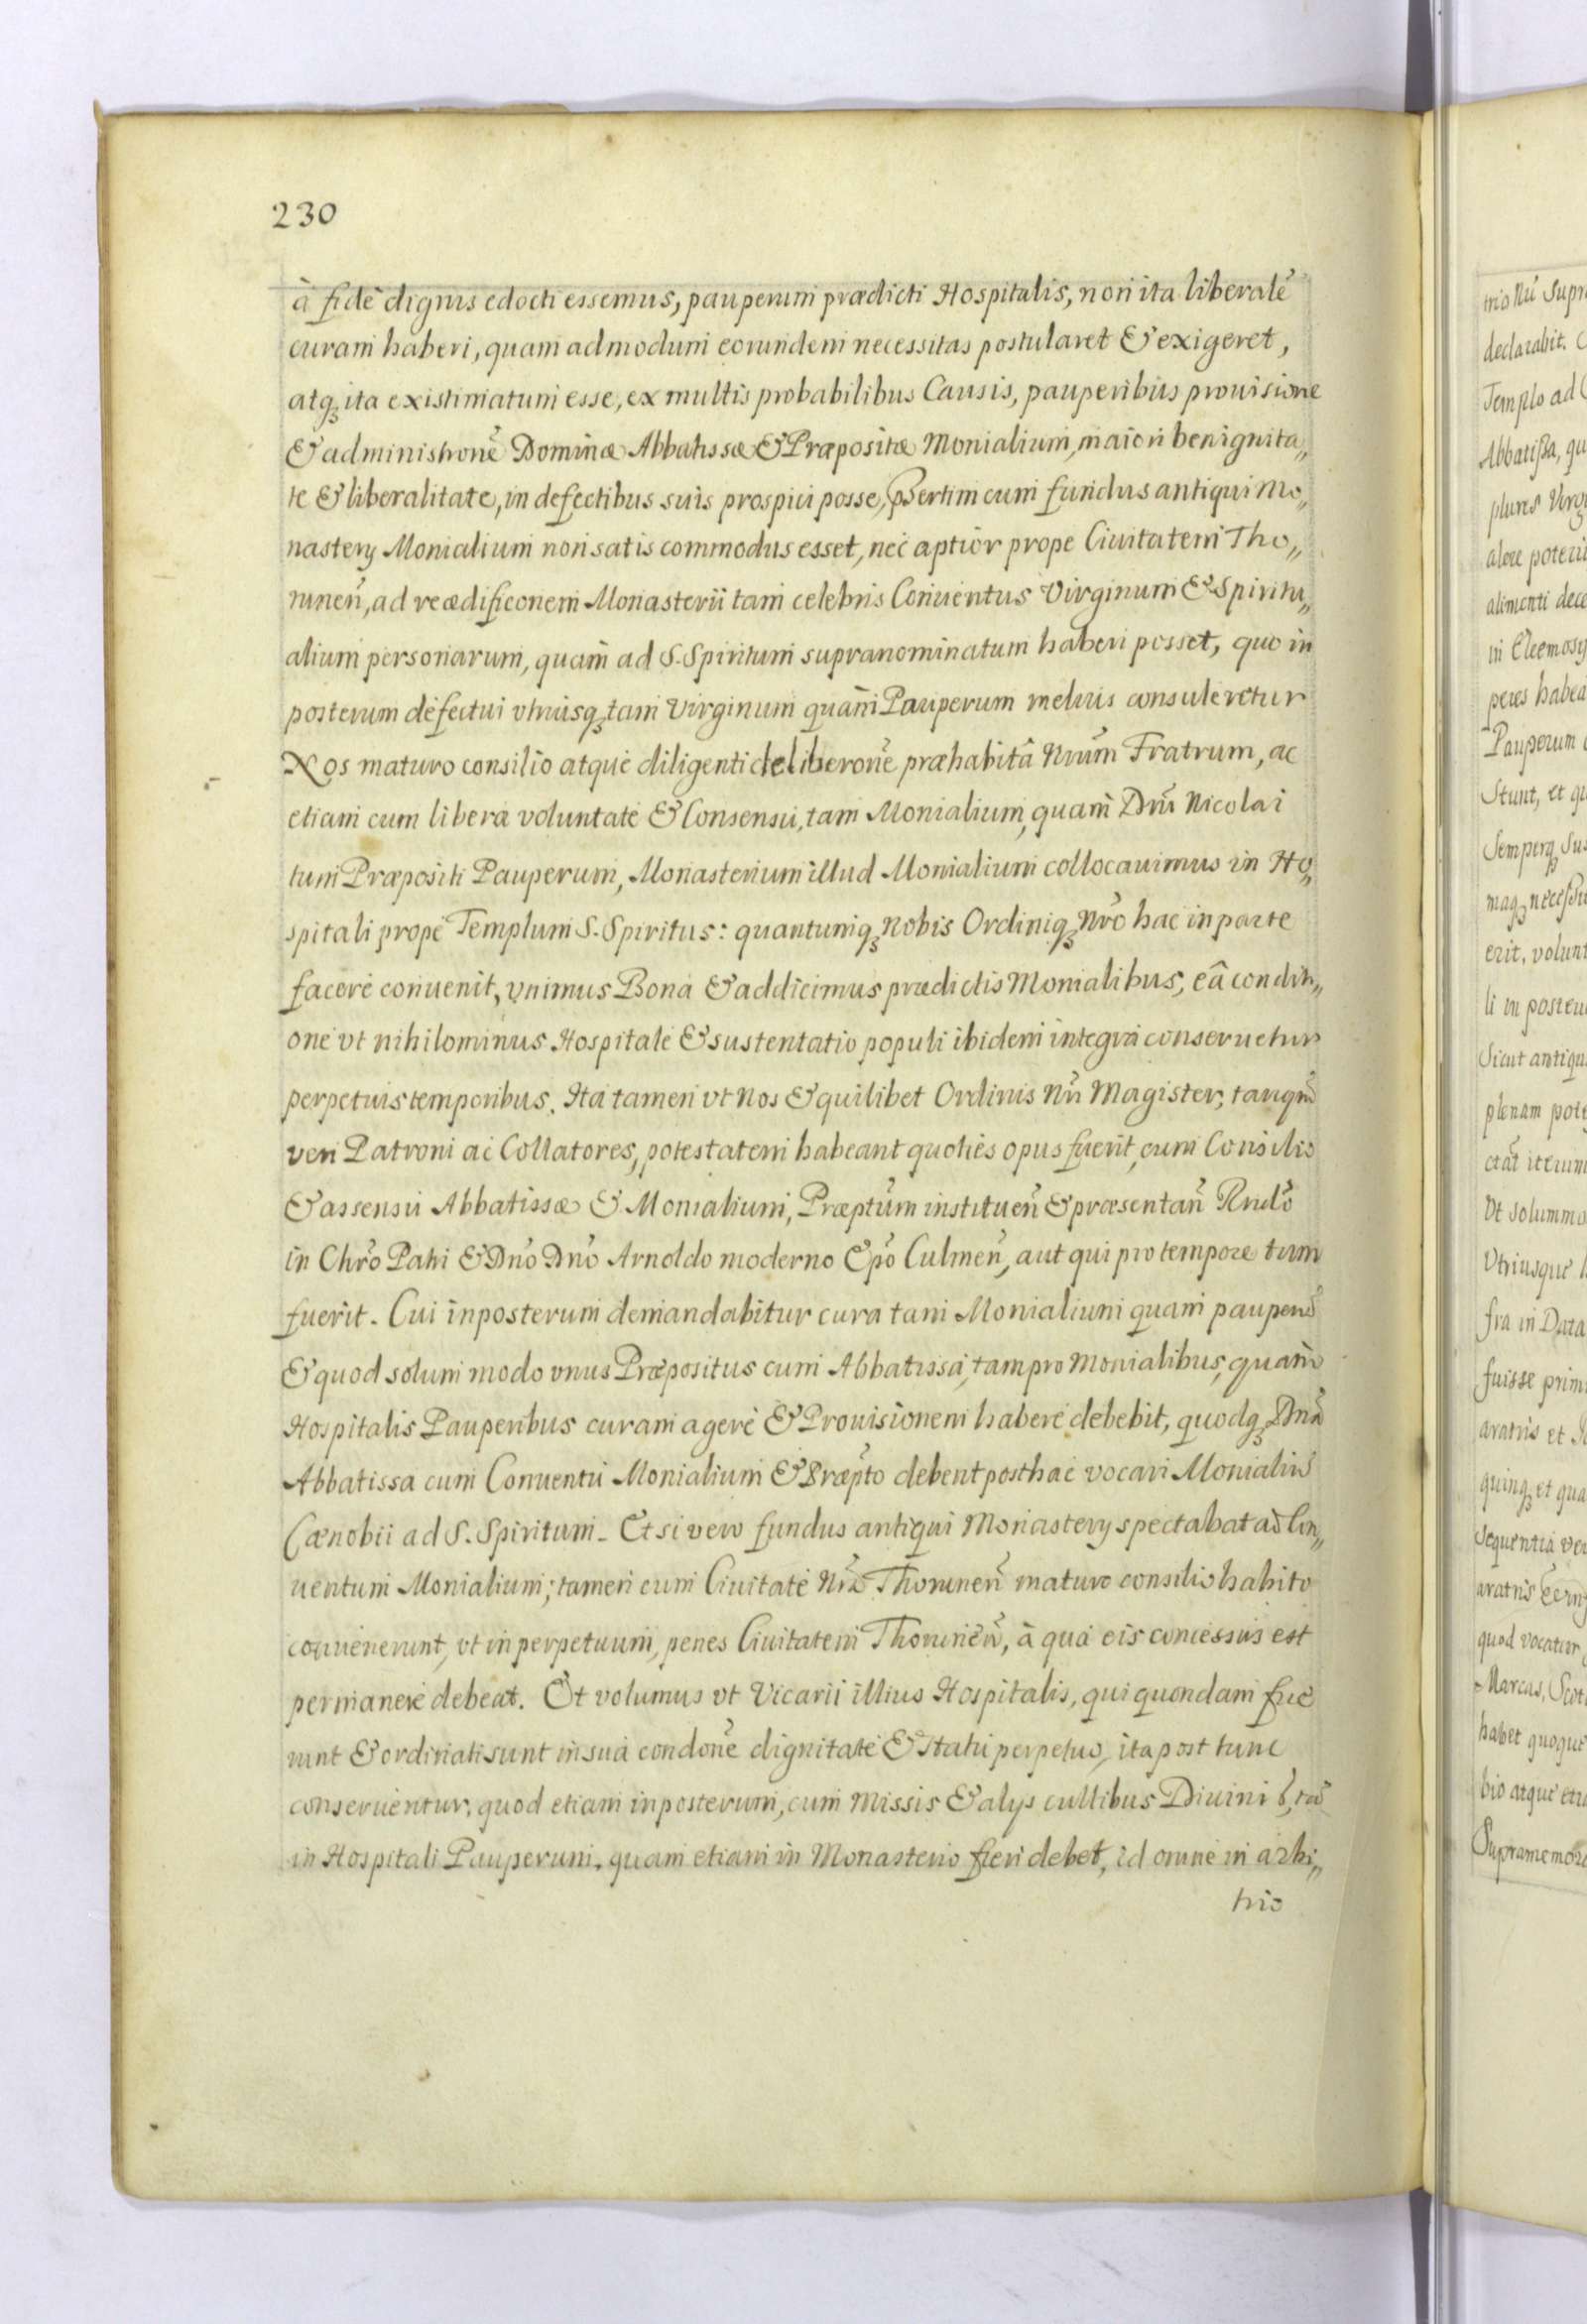 230
à fide dignis edocti essemus, pauperum prædicti Hospitalis, non ita liberalẽ
curam haberi, quam admodum eorundem necessitas postularet & exigeret,
atqꝫ ita existimatum esse, ex multis probabilibus Causis, pauperibus prouisione
& administronẽ Dominæ Abbatissæ & Præpositæ Monialium, maiori benignita„
te & liberalitate, in defectibus suis prospici posse, pßertim cum fundus antiqui Mo„
nastery Monialium non satis commodus esset, nec aptior prope Ciuitatem Tho„
runeñ, ad reædificonem Monasterii tam celebris Conuentus Virginum & Spiritu„
alium personarum, quam ad S. Spiritum supranominatum haberi posset, quo in
posterum defectui vtriusqꝫ tam Virginum quam Pauperum melius consuleretur
Nos maturo consilio atque diligenti deliberonẽ præhabitâ Nrũm Fratrum, ac
etiam cum libera voluntate & Consensu, tam Monialium, quam Dñi Nicolai
tum Præpositi Pauperum, Monasterium illud Monialium collocauimus in Ho„
spitali prope Templum S. Spiritus: quantumqꝫ Nobis Ordiniqꝫ Nr̃o hac in parte
facere conuenit, vnimus Bona & addicimus prædictis Monialibus, eâ conditi„
one vt nihilominus Hospitale & sustentatio populi ibidem integra conseruetur
perpetuis temporibus. Ita tamen vt Nos & quilibet Ordinis Nr̃i Magister, tanqm̃
veri Patroni ac Collatores, potestatem habeant quoties opus fuerit, cum Consilio
& assensu Abbatissæ & Monialium, Præptũm instituen̄ & præsentan̄ Rndõ
in Chrõ Patri & Dnõ Dnõ Arnoldo moderno Epõ Culmeñ, aut qui pro tempore tum
fuerit. Cui inposterum demandabitur cura tam Monialium quam pauperũ
& quod solum modo vnus Præpositus cum Abbatissa, tam pro Monialibus, quam
Hospitalis Pauperibus curam agere & Prouisionem habere debebit, quodqꝫ Dnã
Abbatissa cum Conuentu Monialium & Præptõ debent posthac vocari Monialiũ
Cænobii ad S. Spiritum. Et si vero fundus antiqui Monastery spectabat ad Con„
uentum Monialium; tamen cum Ciuitate Nrã Thoruneñ maturo consilio habito
conuenerunt, vt in perpetuum, penes Ciuitatem Thoruneñ, à qua eis concessus est
permanere debeat. Et volumus vt Vicarii illius Hospitalis, qui quondam fue
runt & ordinati sunt in sua condonẽ dignitate & statu perpetuo, ita post tunc
conseruentur, quod etiam inposterum, cum Missis & alys cultibus Diuini
in Hospitali Pauperum, quam etiam in Monasterio fieri debet, id omne in arbi„
trio
trio Nr̃i Supr
declarabit.
Templo ad
Abbatißa, qu
plures Virg
alere poteri
alimenti dece
in Eleemosy
peres habea
Pauperum
Stunt, et qu
Semperqꝫ Sus
erit, volunt
li in posteru
Sicut antiqu
plenam pote
ctãt iterum
Vt solummo
Vtriusque
fra in Data
fuisse prim
aratris et
quinqꝫ et qua
Sequentia ve
aratris
quod vocatur
Marcas, Scot
habet quoque
bio atque eti
Supramemora